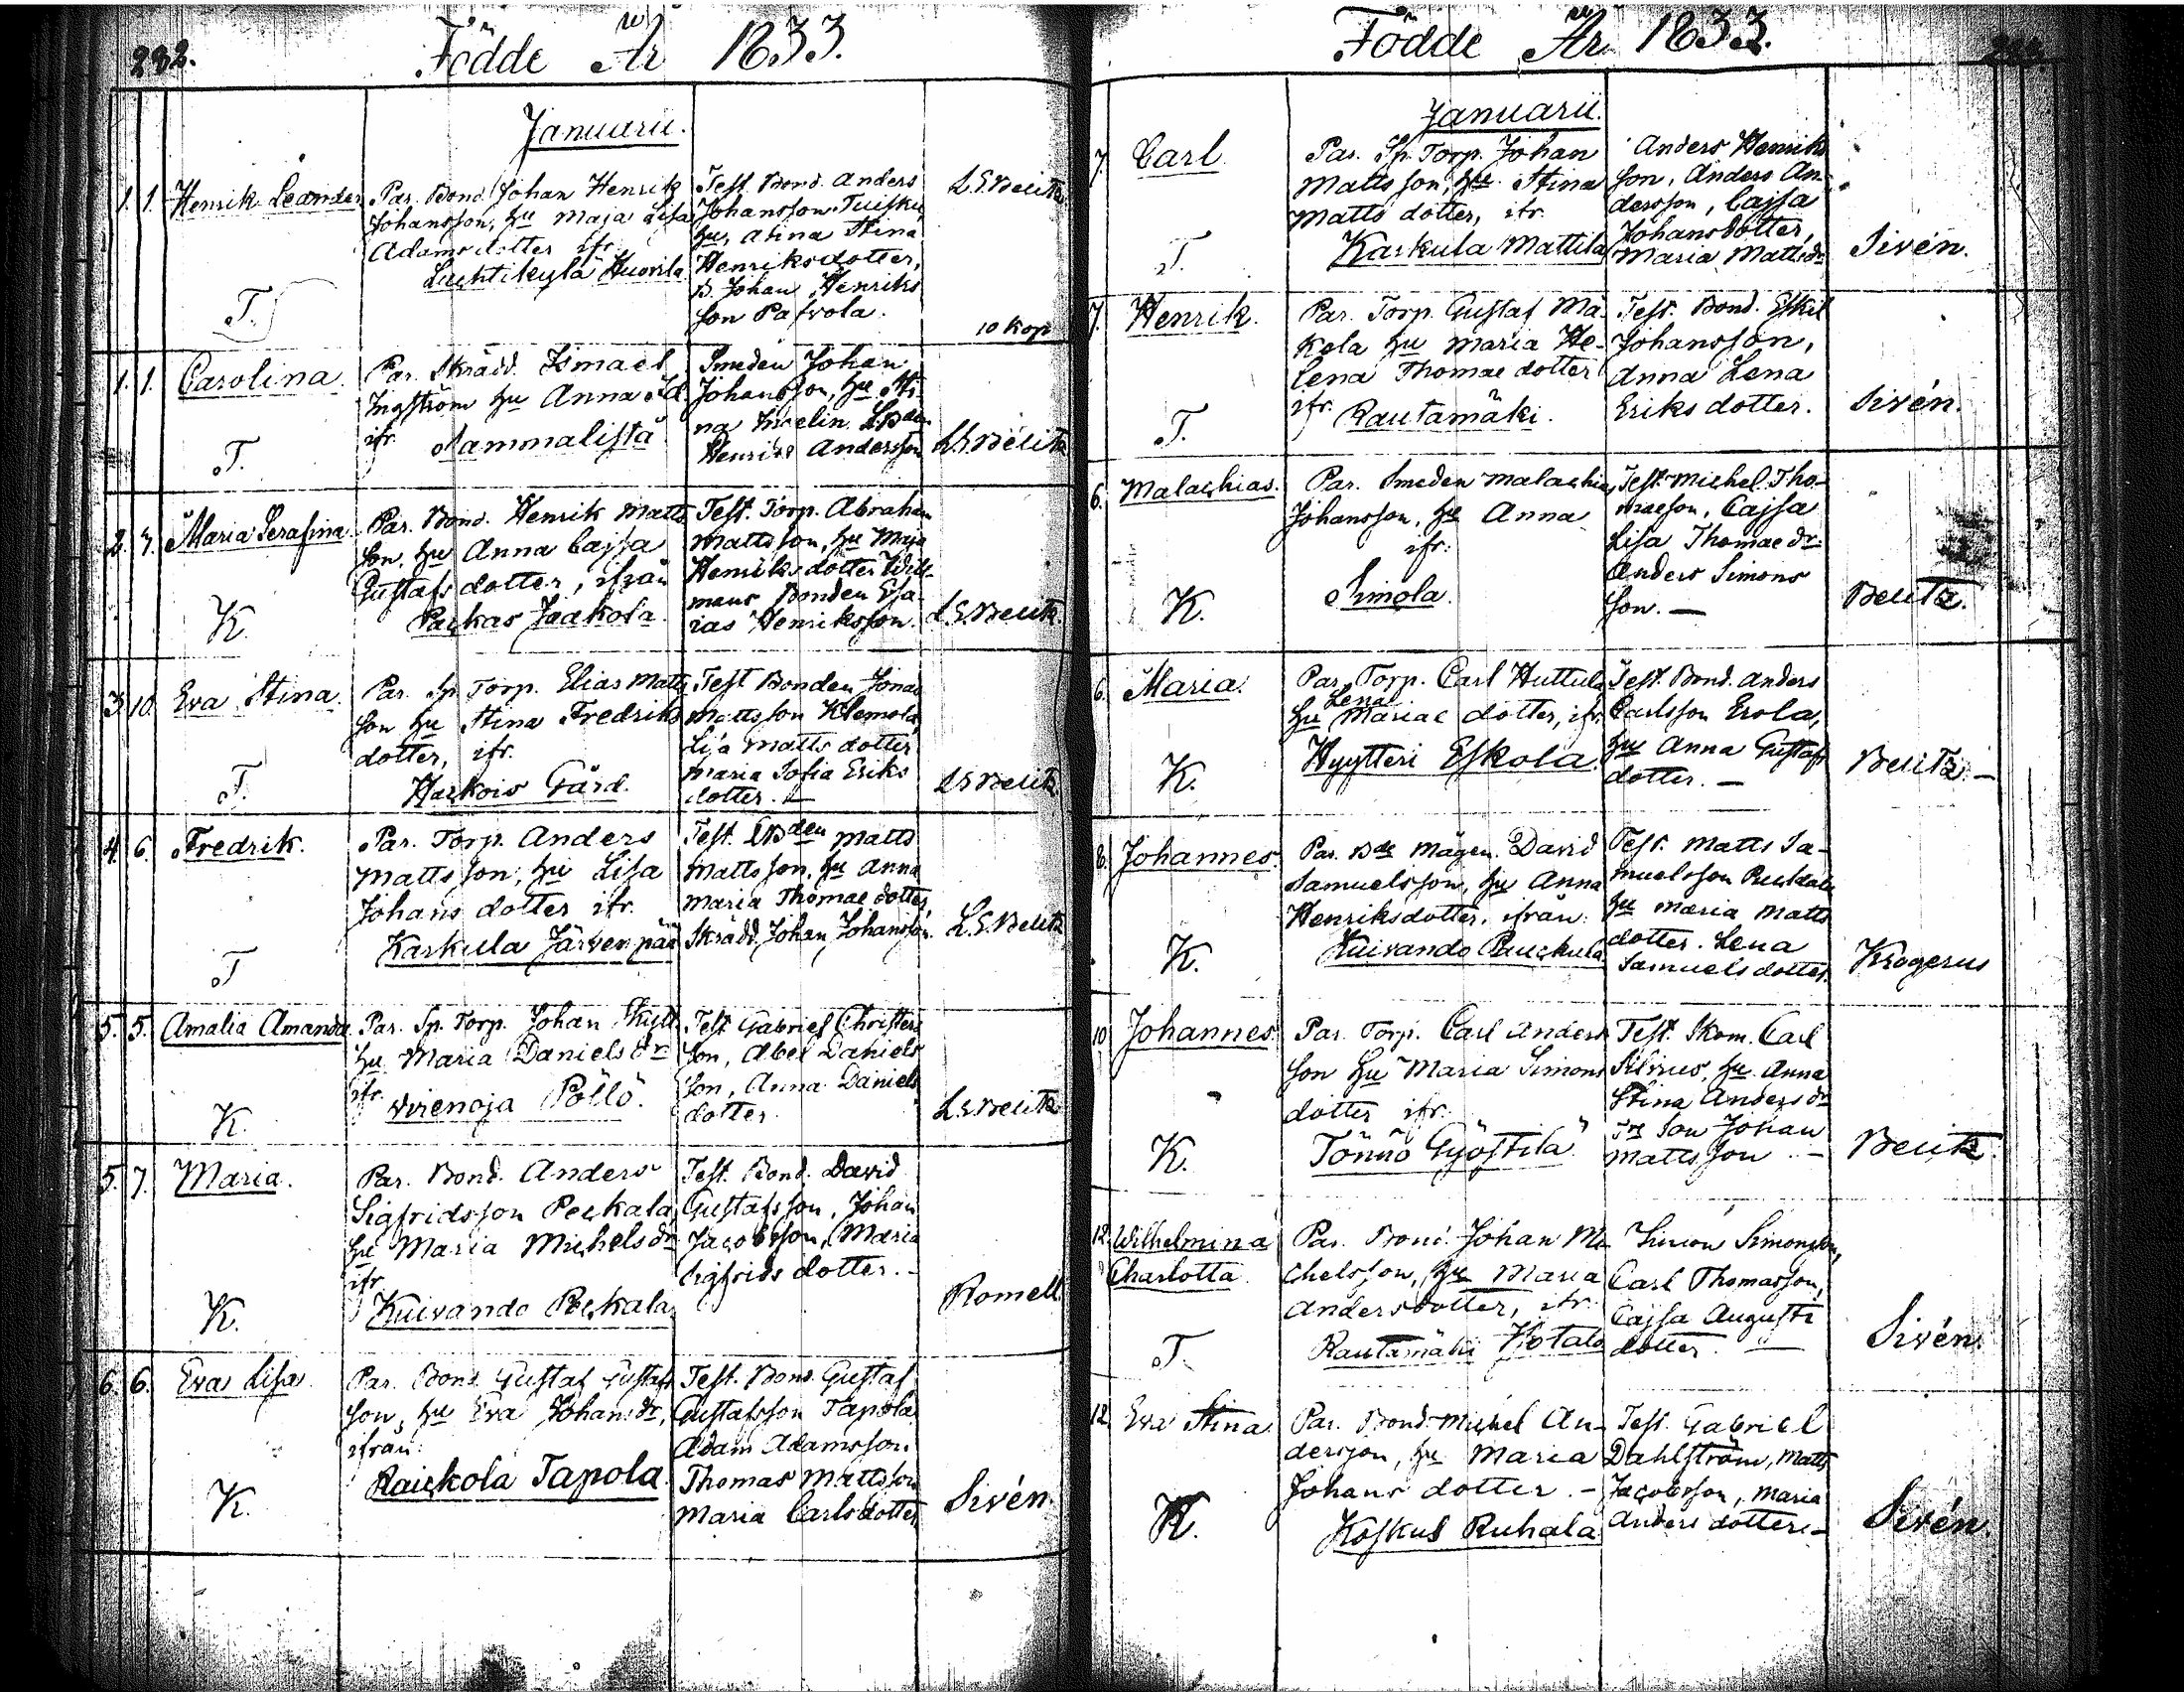 232.
Födde År 1833.
Januarii.
1. 1. Henrik Leander
Par. Bond. Johan Henrik
Johansson, hu Maja Lisa
Adams dotter ifr.
Luhtikylä Huovila
Test. Bond. Anders
Johansson Tuisku,
hu, Stina
Henriksdotter,
B. Johan Henriks
son Pafvola.
L. E. Beutz
T.
10 kop
1. 1. Carolina.
Par. Skrädd. Ismael
Ingström hu Anna
ifr. Sammalista
Smeden Johan
Johansson, hu Sti
na
Henrik Andersson
L. E. Beutz
T.
2. 7. Maria Serafina.
Par. Bond. Henrik Matts
son, hu Anna Cajsa
Gustafs dotter, ifrån
Parkas Jaakola.
Test. Torp. Abraham
Mattsson, hu Maja
Henriks dotter Will-
mans Bonden Esa-
ias Henriksson.
L. E. Beutz.
K.
3. 10. Eva Stina.
Par. Sp. Torp. Elias Matts
son hu Stina Fredriks
dotter, ifr.
Harkois Gård.
Test Bonden Jonas
Mattsson Klemola,
Lisa Matts dotter
Maria Sofia Eriks
dotter. —
L E Beutz.
T.
4. 6. Fredrik.
Par. Torp. Anders
Mattsson, hu Lisa
Johans dotter ifr.
Karkula Järvenpää
Test. Bden Matts
Mattsson, hu Anna
Maria Thomae dotter,
Skrädd. Johan Johansson.
L. E. Beutz
T
5. 5. Amalia Amanda
Par. Sp. Torp. Johan Skytt
hu Maria Daniels dr
ifr. Virenoja Pöllö.
Test Gabriel Christers
son, Abel Daniels
son, Anna Daniels
dotter
L. E. Beutz
K.
5. 7. Maria.
Par. Bond. Anders
Sigfridsson Peckala
hu Maria Michels dr
ifr.
Kuivando Peckala
Test. Bond. David
Gustafsson, Johan
Jacobsson, Maria
Sigfrids dotter. -
Romell
K.
6. 6. Eva Lisa.
Par. Bond. Gustaf Gustafs
son, hu Eva Johansdr,
ifrån:
Raickola Tapola.
Test. Bond. Gustaf
Gustafsson Tapola
Adam Adamsson.
Thomas Mattsson
Maria Carlsdotter,
Sivén.
K.
Födde År 1833.
Januarii.
7. Carl.
Par. Sp. Torp. Johan
Mattsson, hu. Stina
Matts dotter, ifr.
Karkula Mattila
Anders Henriks
son, Anders An-
dersson, Cajsa
Johansdotter,
Maria Mattsdr
Sivén.
T.
7. Henrik.
Par. Torp. Gustaf Mä-
kelä hu Maria He-
lena Thomae dotter
ifr. Rautamäki.
Test. Bond. Eskil
Johansson,
Anna Lena
Eriks dotter.
Sivén.
T.
6. Malachias.
Par. Smeden Malachias
Johansson, hu Anna
ifr:
Simola.
Test. Michel Tho-
maeson, Cajsa
Lisa Thomae dr.
Anders Simons
son. —
Beutz.
K.
6. Maria.
Par. Torp. Carl Huttula
Lena
hu Mariae dotter, ifr.
Hyytteri Eskola.
Test. Bond. Anders
Carlsson Erola,
hu Anna Gustafs
dotter. —
Beutz. —
K.
8. Johannes.
Par. Bde Mågen. David
Samuelsson, hu Anna
Henriksdotter, ifrån:
Kuivando Pauckula
Test. Matts Sa-
muelsson
hu Maria Matts
dotter. Lena
Samuels dotter.
Krogerus
K.
10 Johannes.
Par. Torp. Carl Anders
son hu Maria Simons
dotter ifr.
Tönnö Gyöstilä
Test. Skom. Carl
Silvius, hu. Anna
Stina Anders dr
son Johan
Mattsson —
Beutz.
K.
12. Wilhelmina
Charlotta.
Par. Bond. Johan Mi-
chelsson, hu Maria
Andersdotter, ifr.
Rautamäki Hotala
Simon Simonsson,
Carl Thomasson,
Cajsa Augusti
dotter. —
Sivén.
T.
12. Eva Stina.
Par. Bond. Michel An-
dersson, hu Maria
Johans dotter. -
Koskus Ruhala
Test. Gabriel
Dahlström, Matts
Jacobsson, Maria
Anders dotter. -
Sivén.
K.